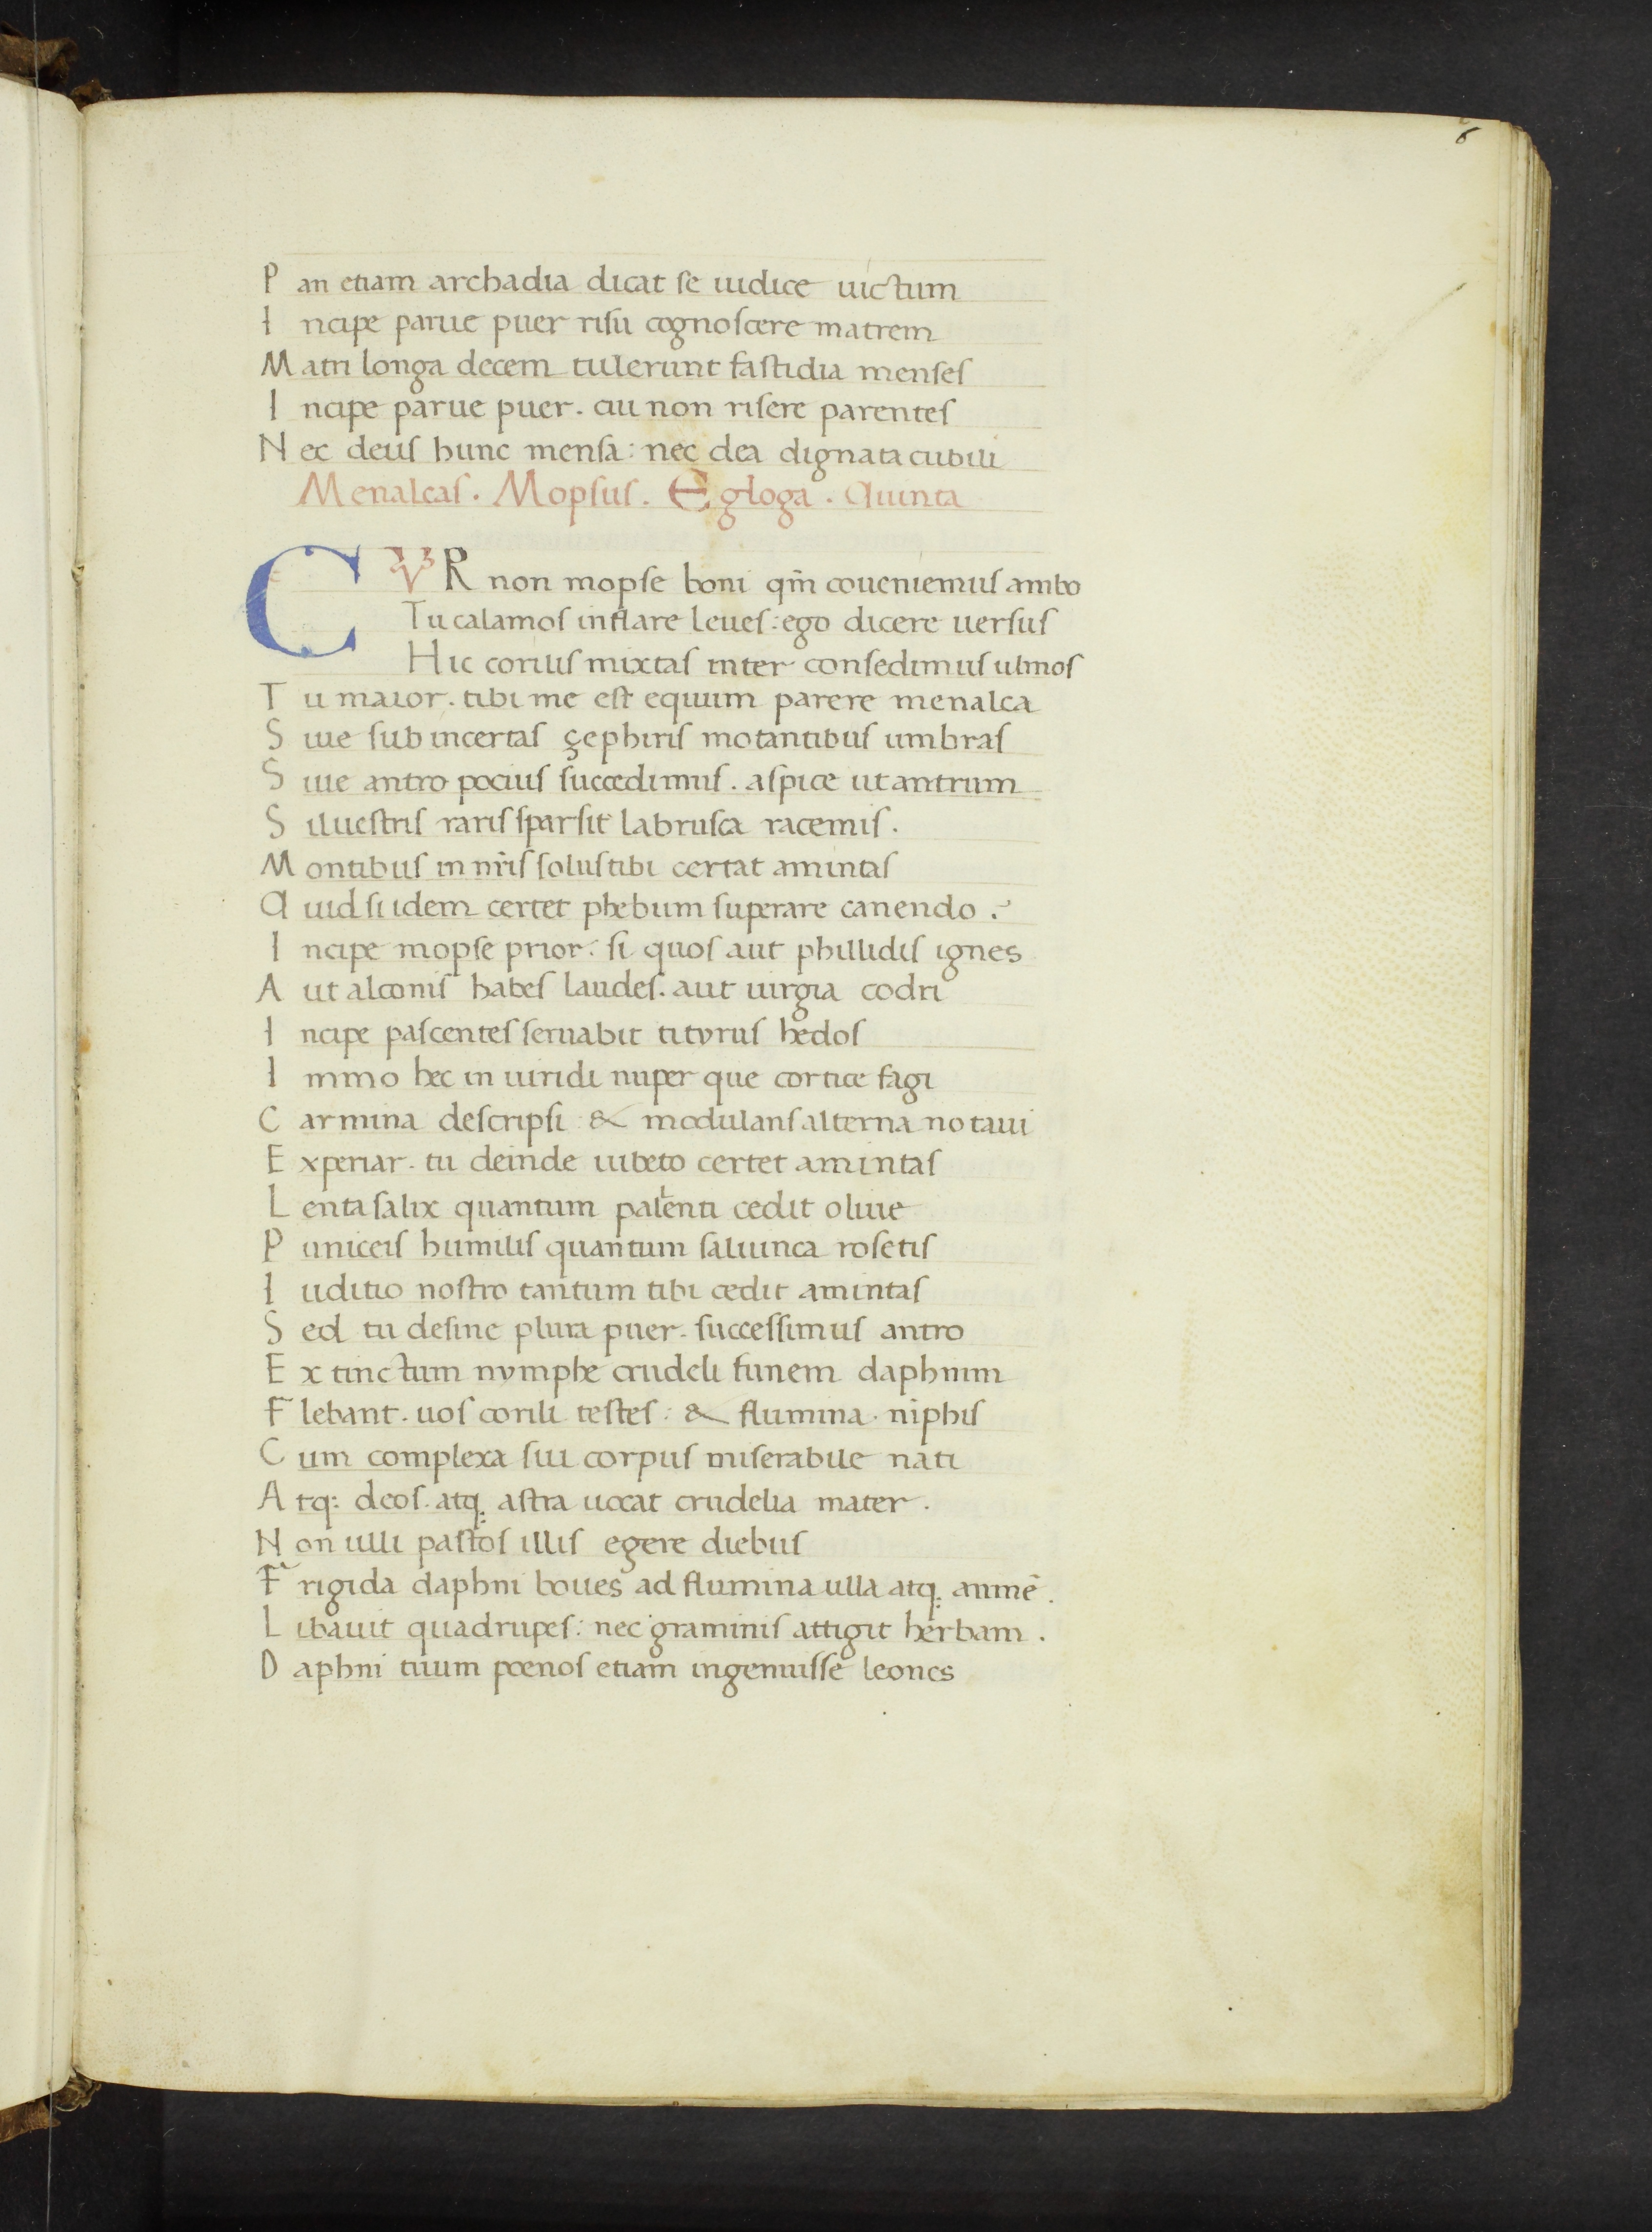 6
Pan etiam archadia dicat se iudice uictum
Incipe parue puer risu cognoscere matrem
Matri longa decem tulerunt fastidia menses
Incipe parue puer. cui non risere parentes
Nec deus hunc mensa: nec dea dignata cubili
Menalcas. Mopsus. Egloga. Quinta
CVR non mopse boni qm̄ coueniemus ambo
Tu calamos inflare leues: ego dicere uersus
Hic corilis mixtas inter consedimus ulmos
Tu maior. tibi me est equum parere menalca
Siue sub incertas çephiris motantibus umbras
Siue antro pocius succedimus. aspice ut antrum
Siluestris raris sparsit labrusca racemis.
Montibus in nr̄is solus tibi certat amintas
Quid si idem certet phebum superare canendo?
Incipe mopse prior: si quos aut phillidis ignes
Aut alconis habes laudes. aut uirgia codri
Incipe pascentes seruabit tityrus hedos
Immo hec in uiridi nuper que cortice fagi
Carmina descripsi: & modulans alterna notaui
Experiar. tu deinde iubeto certet amintas
Lenta salix quantum pallenti cedit oliue
Puniceis humilis quantum saliunca rosetis
Iuditio nostro tantum tibi cedit amintas
Sed tu desine plura puer. successimus antro
Extinctum nymphe crudeli funem daphnim
Flebant. uos corili testes: & flumina niphis
Cum complexa sui corpus miserabile nati
Atq: deos. atq; astra uocat crudelia mater.
Non ulli pastos illis egere diebus
Frigida daphni boues ad flumina ulla atq; amnē.
Libauit quadrupes: nec graminis attigit herbam.
Daphni tuum poenos etiam ingemuisse leones